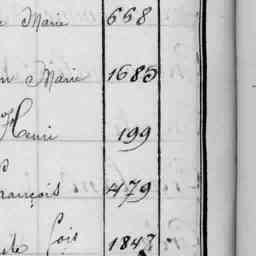 Marie 668
Marie 1685
Henri 199
François 479
fois 1847